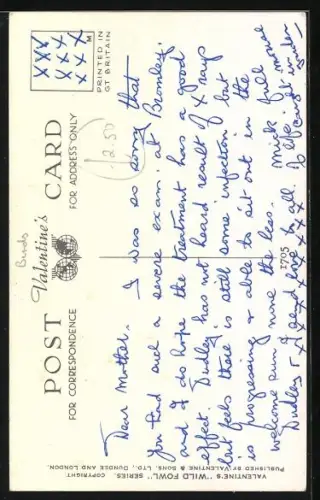 POST CARD
Valentine's
FOR CORRESPONDENCE
FOR ADDRESS ONLY
PRINTED IN
GT. BRITAIN
XXX
XXX
XXX
M
Birds
12.50
Dear Mother. I was so sorry that
you had such a severe exam: at Bromley.
and I do hope the treatment has a good
effect. Dudley has not heard result of X rays
but feels there is still some infection but
is progressing & able to sit out in the
welcome sun more the less. Mick full more
Dudley & I send love to all. of life
1705
VALENTINE'S "WILD FOWL" SERIES. COPYRIGHT
PUBLISHED BY VALENTINE & SONS, LTD., DUNDEE AND LONDON.